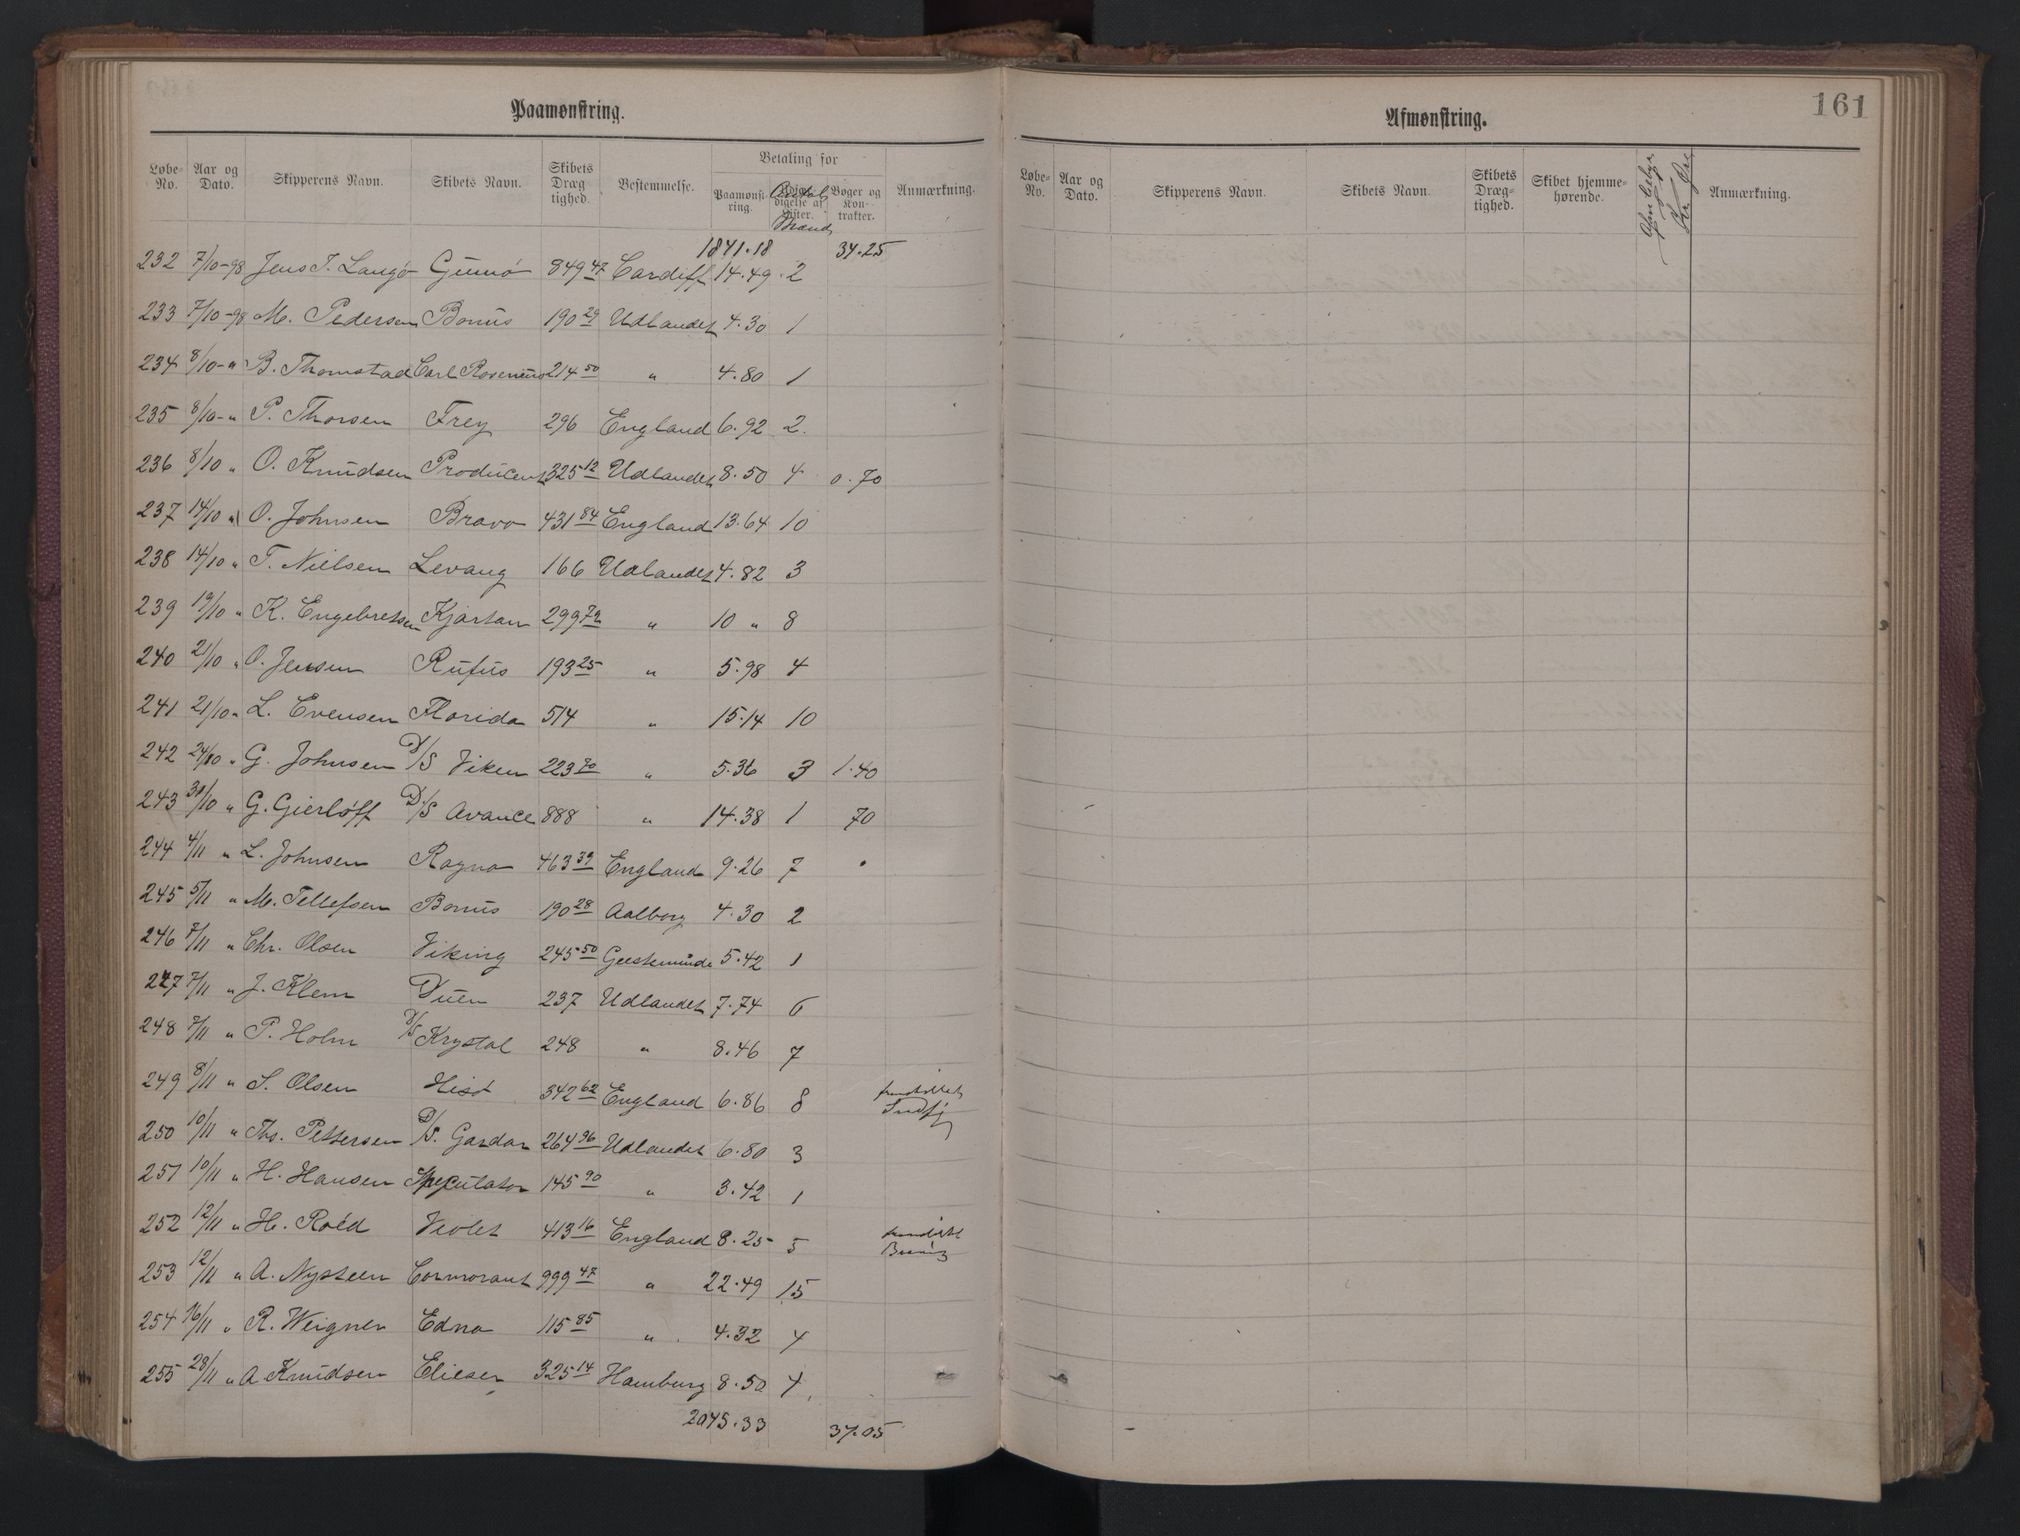 Paamønstring.
Løbe-No. Aar og Dato. Skipperens Navn. Skibets Navn. Skibets Dræg tighed. Bestemmelse. Betaling for Paamønst-ring. Antal Mænd Bøger og Kon-trakter. Anmærkning.
1841.18 34.25
232 7/10-98 Jens T. Langø Gunnø 849 47 Cardiff 14.49 2
233 7/10-98 M. Pedersen Bonus 190 29 Udlandet 4.30 1
234 8/10-" B. Thomstad Carl Rosenius 214 50 " 4.80 1
235 8/10-" P. Thorsen Frey 296 England 6.92 2.
236 8/10 " O. Knudsen Producent 325 12 Udlandet 8.50 4 0.70
237 14/10 " O. Johnsen Bravo 431 84 England 13.64 10
238 14/10 " T. Nielsen Levang 166 Udlandet 4.82 3
239 19/10 " K. Engebretsen Kjartan 299 72 " 10 " 8
240 21/10 " O. Jensen Rufus 193 25 " 5.98 4
241 21/10 " L. Evensen Florida 514 " 15.14 10
242 24/10 " G. Johnsen D/S Viken 223 70 " 5.36 3 1.40
243 31/10 " G. Gierløff D/S Avance 888 " 14.38 1 70
244 4/11 " L. Johnsen Ragna 463 39 England 9.26 7
245 5/11 " M. Tellefsen Bonus 190 28 Aalborg 4.30 2
246 7/11 " Chr. Olsen Viking 245 50 Geestemünde 5.42 1
247 7/11 " J. Klem Duen 237 Udlandet 7.74 6
248 7/11 " P. Holm D/S Krystal 248 " 8.46 7
249 8/11 " S. Olsen Hist 342 62 England 6.86 8
250 10/11 " Ths. Pettersen D/S. Gardar 264 96 Udlandet 6.80 3
251 10/11 " H. Hansen Speculator 145 90 " 3.42 1
252 12/11 " H. Roëd Violet 413 16 England 8.25 5
253 12/11 " A. Nysteen Cormorant 999 47 " 22.49 15
254 16/11 " R. Weigner Edna 115 85 " 4.32 4
255 28/11 " A Knudsen Elieser 325 14 Hamburg 8.50 4
2045.33 37.05
Afmønstring.
161
Løbe-No. Aar og Dato. Skipperens Navn. Skibets Navn. Skibets Dræg-tighed. Skibet hjemme-hørende. Anmærkning.